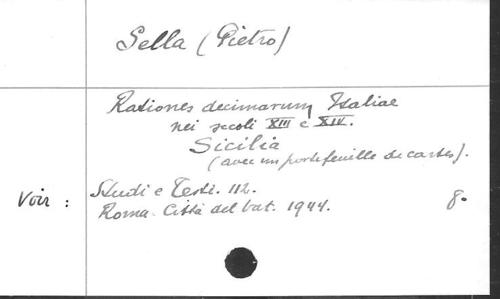 Sella (Pietro)
Rationes decimarum Italiae
nei secoli XIII e XIV.
Sicilia
(avec un portefeuille de cartes).
Voir : Studi e Testi. 112.
Roma. Città del Vat. 1944. 8°